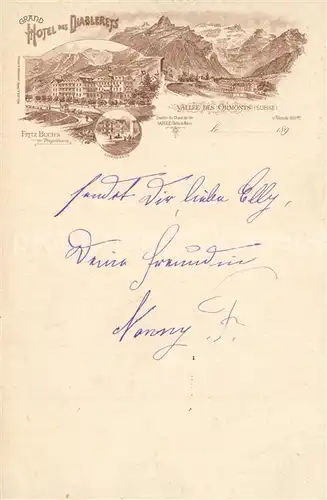 GRAND
HOTEL DES DIABLERETS
VALLÉE DES ORMONTS (SUISSE)
FRITZ BUCHS
Propriétaire
le 189
sendet Dir, liebe Elly,
Deine Freundin
Nanny F.